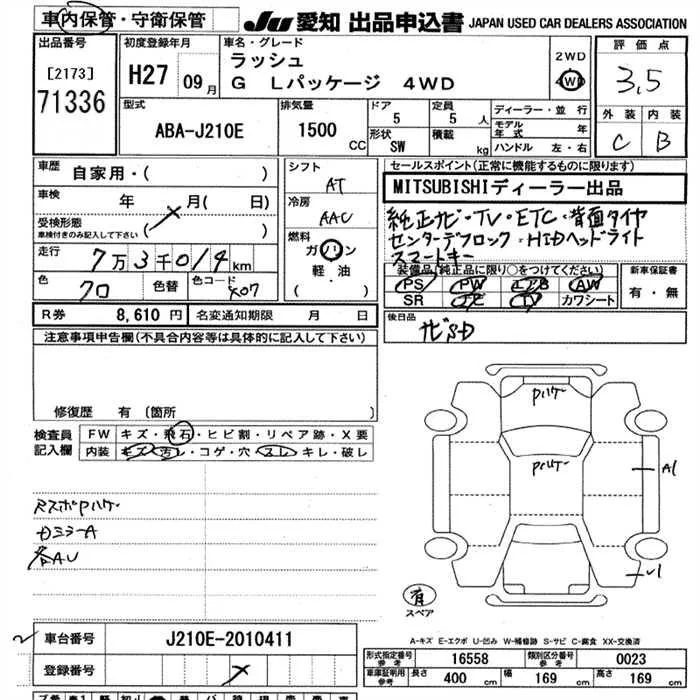 車内保管・守衛保管
JU 愛知 出品申込書 JAPAN USED CAR DEALERS ASSOCIATION
出品番号
[2173]
71336
初度登録年月
H27 09月
車名・グレード
ラッシュ
G Lパッケージ 4WD
2WD
4WD
評価点
3.5
外装 内装
C B
型式
ABA-J210E
排気量
1500 CC
ドア
5
定員
5 人
形状
SW
積載
kg
ディーラー・並行
モデル年式 年
ハンドル 左・右
車歴
自家用・( )
車検 年 月( 日)
受検形態
車検付きのみ記入して下さい ( )
走行
7万3千019km
色
クロ
色替
色コード
X07
シフト
AT
冷房
AAC
燃料
ガソリン
軽・油
( )
セールスポイント(正常に機能するものに限ります)
MITSUBISHIディーラー出品
純正ナビ・TV・ETC・背面タイヤ
センターデフロック・HIDヘッドライト
スマートキー
装備品(純正品に限り○をつけてください)
PS PW エアB AW
SR ナビ TV カワシート
新車保証書
有・無
R券 8,610 円
名変通知期限 月 日
後日品
ナビSD
注意事項申告欄(不具合内容等は具体的に記入して下さい)
修復歴 有 〔箇所 〕
検査員
記入欄
FW キズ・飛石・ヒビ割・リペア跡・X要
内装 キズ・汚レ・コゲ・穴・スレ・キレ・破レ
各AU
Pハゲ
Pハゲ
A1
有
スペア
A-キズ E-エクボ U-凹み W-補修跡 S-サビ C-腐食 XX-交換済
車台番号 J210E-2010411
登録番号
形式指定番号
参考
16558
類別区分番号
参考
0023
車庫証明用
参考
長さ 400 cm 幅 169 cm 高さ 169 cm